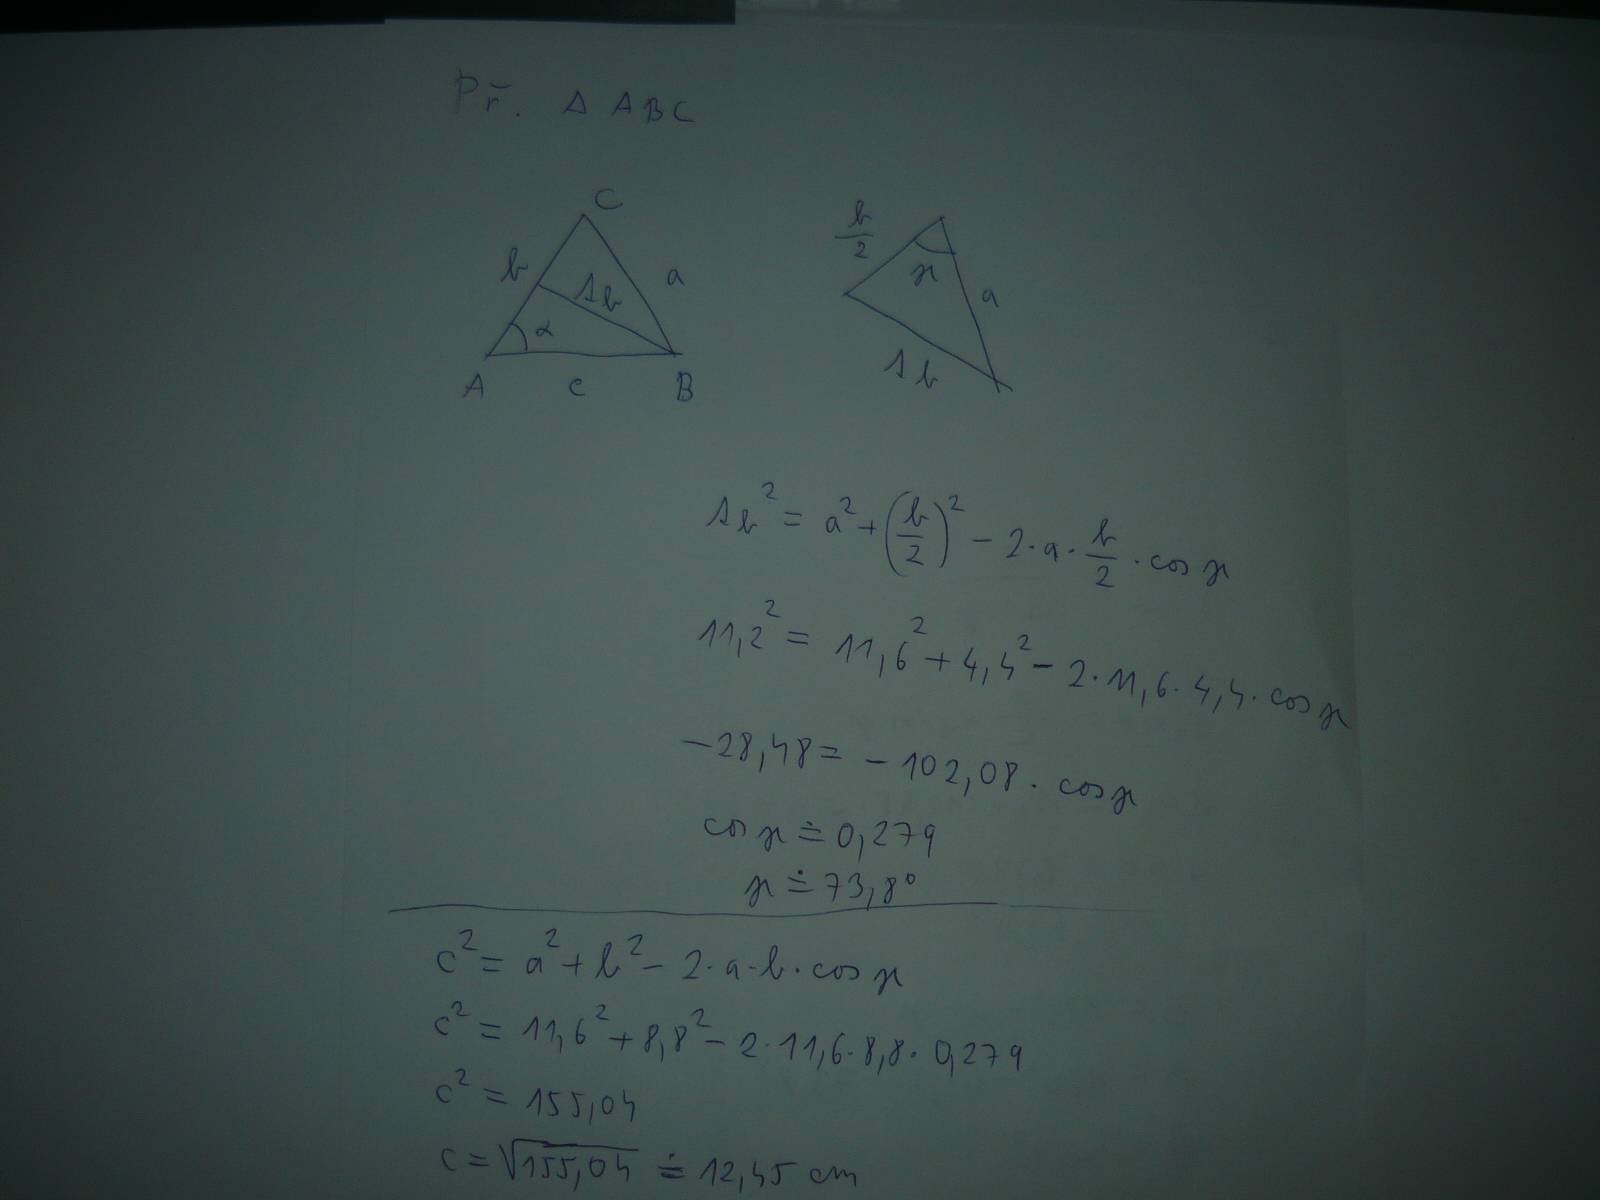 Př. Δ ABC
C
b
a
s_b
α
A
c
B
b/2
γ
a
s_b
s_b² = a² + (b/2)² - 2·a·b/2·cos γ
11,2² = 11,6² + 4,4² - 2·11,6·4,4·cos γ
-28,48 = -102,08·cos γ
cos γ ≐ 0,279
γ ≐ 73,8°
c² = a² + b² - 2·a·b·cos γ
c² = 11,6² + 8,8² - 2·11,6·8,8·0,279
c² = 155,04
c = √155,04 ≐ 12,45 cm